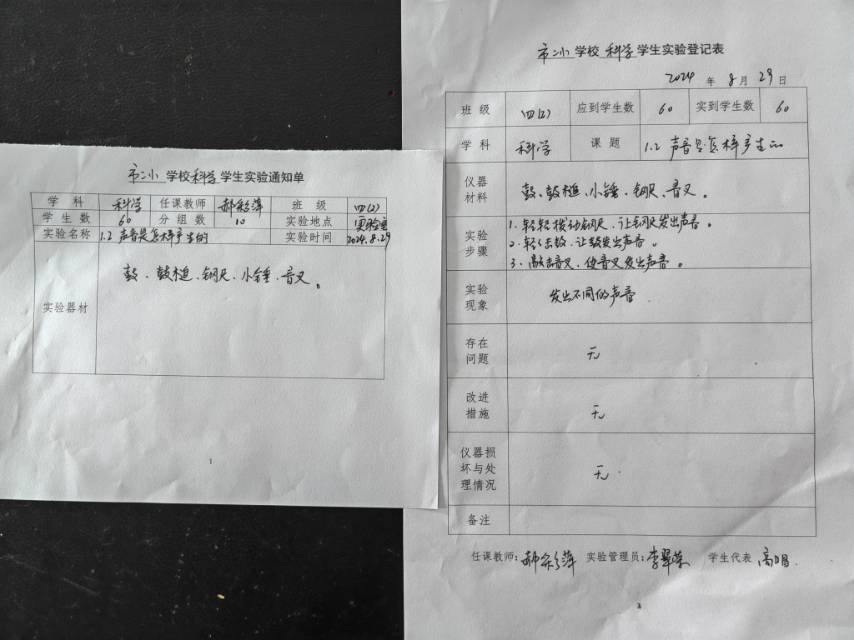 市二小学校科学学生实验通知单
学科 科学 任课教师 郝彩萍 班级 四(2)
学生数 60 分组数 10 实验地点 实验室
实验名称 1.2 声音是怎样产生的 实验时间 2024.8.29
实验器材 鼓、鼓槌、钢尺、小锤、音叉。
1
市二小学校科学学生实验登记表
2024年8月29日
班级 四(2) 应到学生数 60 实到学生数 60
学科 科学 课题 1.2 声音是怎样产生的
仪器材料 鼓、鼓槌、小锤、钢尺、音叉。
实验步骤 1、轻轻拨动钢尺,让钢尺发出声音。
2、轻轻击鼓,让鼓发出声音。
3、敲击音叉,使音叉发出声音。
实验现象 发出不同的声音.
存在问题 无
改进措施 无
仪器损坏与处理情况 无.
备注
任课教师:郝彩萍 实验管理员:李翠荣 学生代表 高明